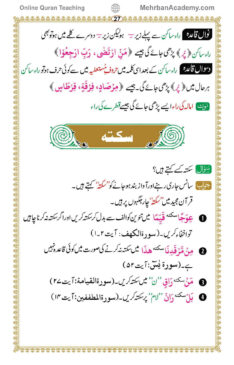 Online Quran Teaching
MehrbanAcademy.com
27
نواں قاعدہ راء ساکن سے پہلے زیر ہو لیکن زیر دوسرے کلمے میں ہو تو بھی
راء ساکن (پُر) پڑھی جائے گی جیسے (مَنِ ارْتَضٰى ، رَبِّ ارْجِعُوْا)
دسواں قاعدہ راء ساکن کے بعد اسی کلمہ میں حروف مستعلیہ میں سے کوئی حرف ہو تو راء ساکن
ہر حال میں (پُر) پڑھی جائے گی ۔ جیسے (مِرْصَادٍ، فِرْقَةٍ، قِرْطَاسٍ)
امالہ کی راء ایسے پڑھی جائے گی جیسے قطرے کی راء
سکتہ
سوال سکتہ کسے کہتے ہیں؟
جواب سانس جاری رہنے اور آواز بند ہو جانے کو "سکتہ" کہتے ہیں۔
قرآن مجید میں "سکتہ" چار جگہوں پر ہیں۔
1 عِوَجًا سکتہ قَيِّمًا میں تنوین کو الف سے بدل کر سکتہ کریں اور اگر سکتہ نہ کرنا چاہیں
تو اخفاء کریں۔ (سورۃ الکھف: آیت ۱،۲)
2 مِنْ مَّرْقَدِنَا سکتہ هٰذَا میں سکتہ نہ کرنے کی صورت میں کوئی قاعدہ نہیں
ہے۔ (سورۃ یٰسٓ: آیت ۵۲)
3 مَنْ سکتہ رَاقٍ "ن" میں سکتہ کریں۔ (سورۃ القیامۃ: آیت ۲۷)
4 بَلْ سکتہ رَانَ "لام" پر سکتہ کریں۔ (سورۃ المطففین: آیت ۱۴)